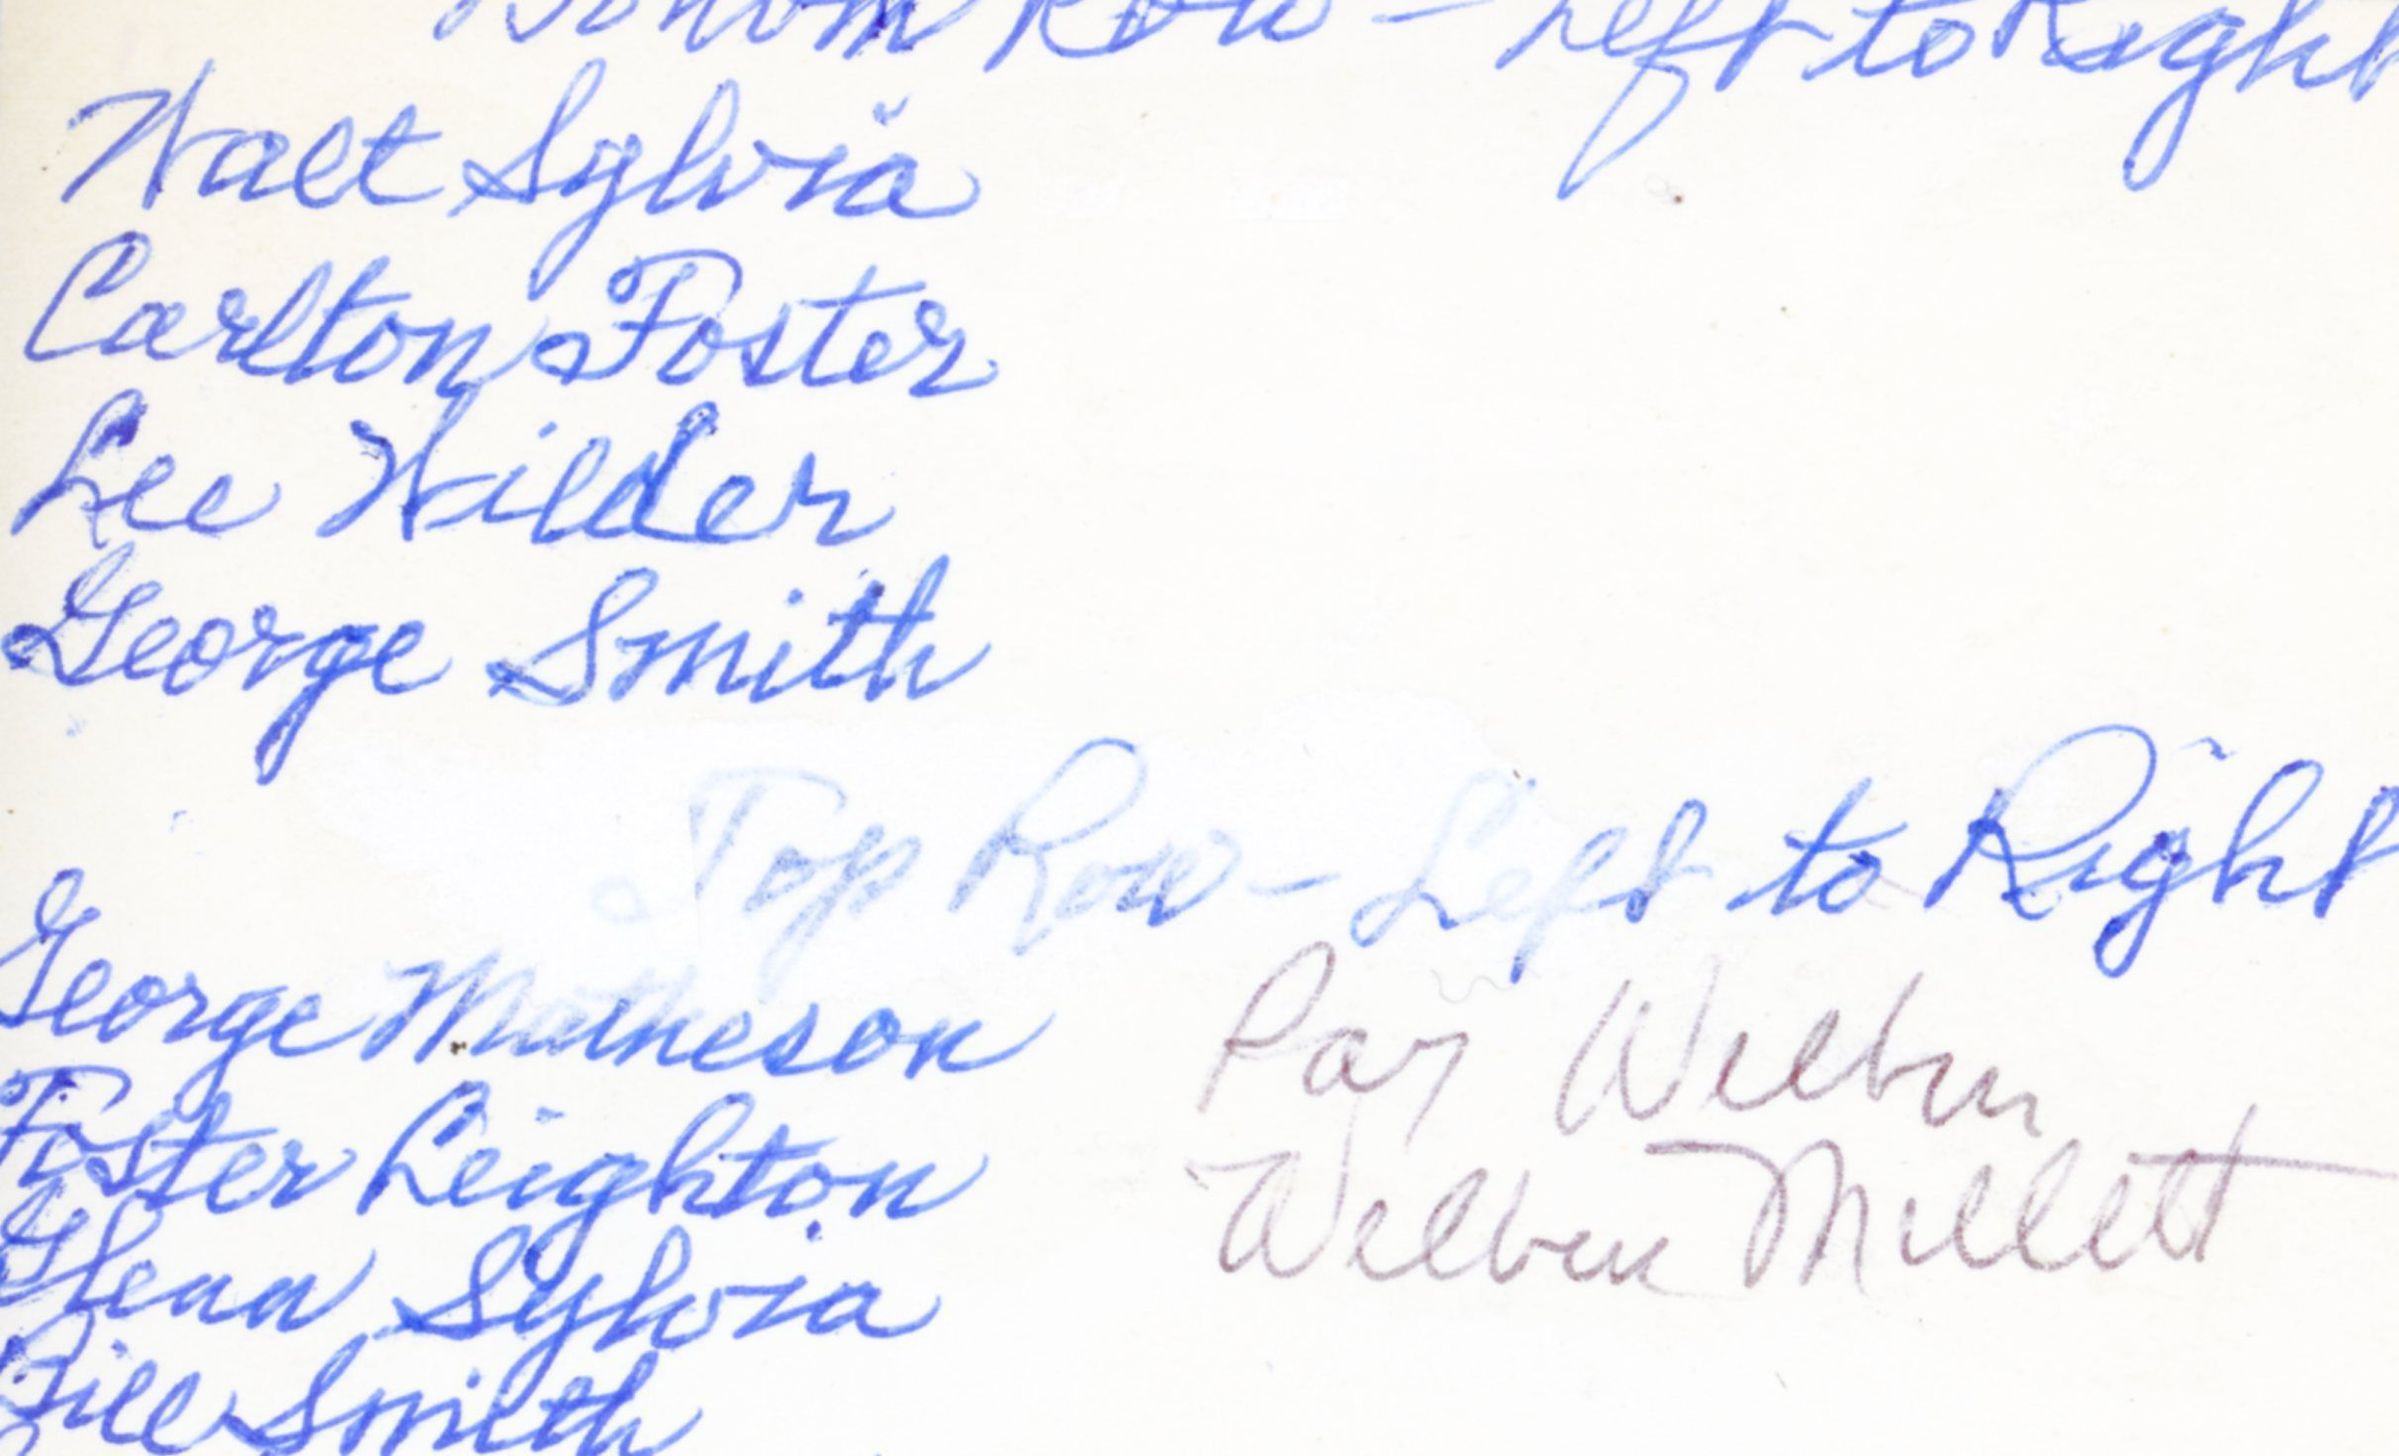 Bottom Row - Left to Right
Walt Sylvia
Carlton Foster
Lee Wilder
George Smith
Top Row - Left to Right
George Matheson
Foster Leighton
Glenn Sylvia
Bill Smith
Ray Wilbur
Wilbur Millett